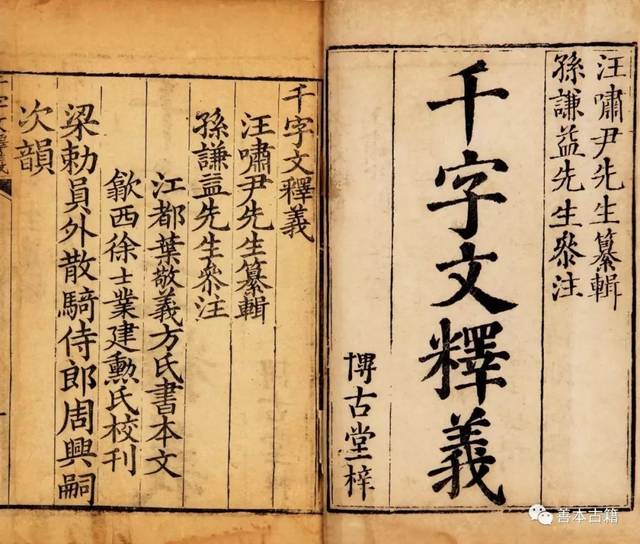 汪嘯尹先生纂輯
孫謙益先生參注
千字文釋義
博古堂梓
千字文釋義
汪嘯尹先生纂輯
孫謙益先生參注
江都葉敬義方氏書本文
歙西徐士業建勳氏校刊
梁勅員外散騎侍郎周興嗣
次韻
千字文釋義
善本古籍